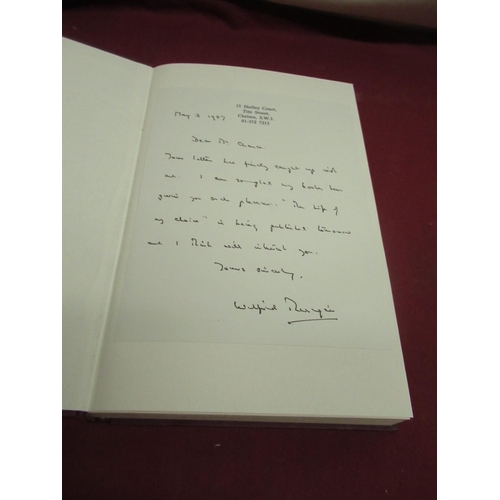 15 Shelley Court,
Tite Street,
Chelsea, S.W.3.
01-352 7213
May 6 1987
Dear Mr
Your letter has finally caught up with
me. I am my books have
given you such pleasure. "The Life of
my choice" is being published tomorrow
and I think will interest you.
Yours sincerely,
Wilfred Thesiger